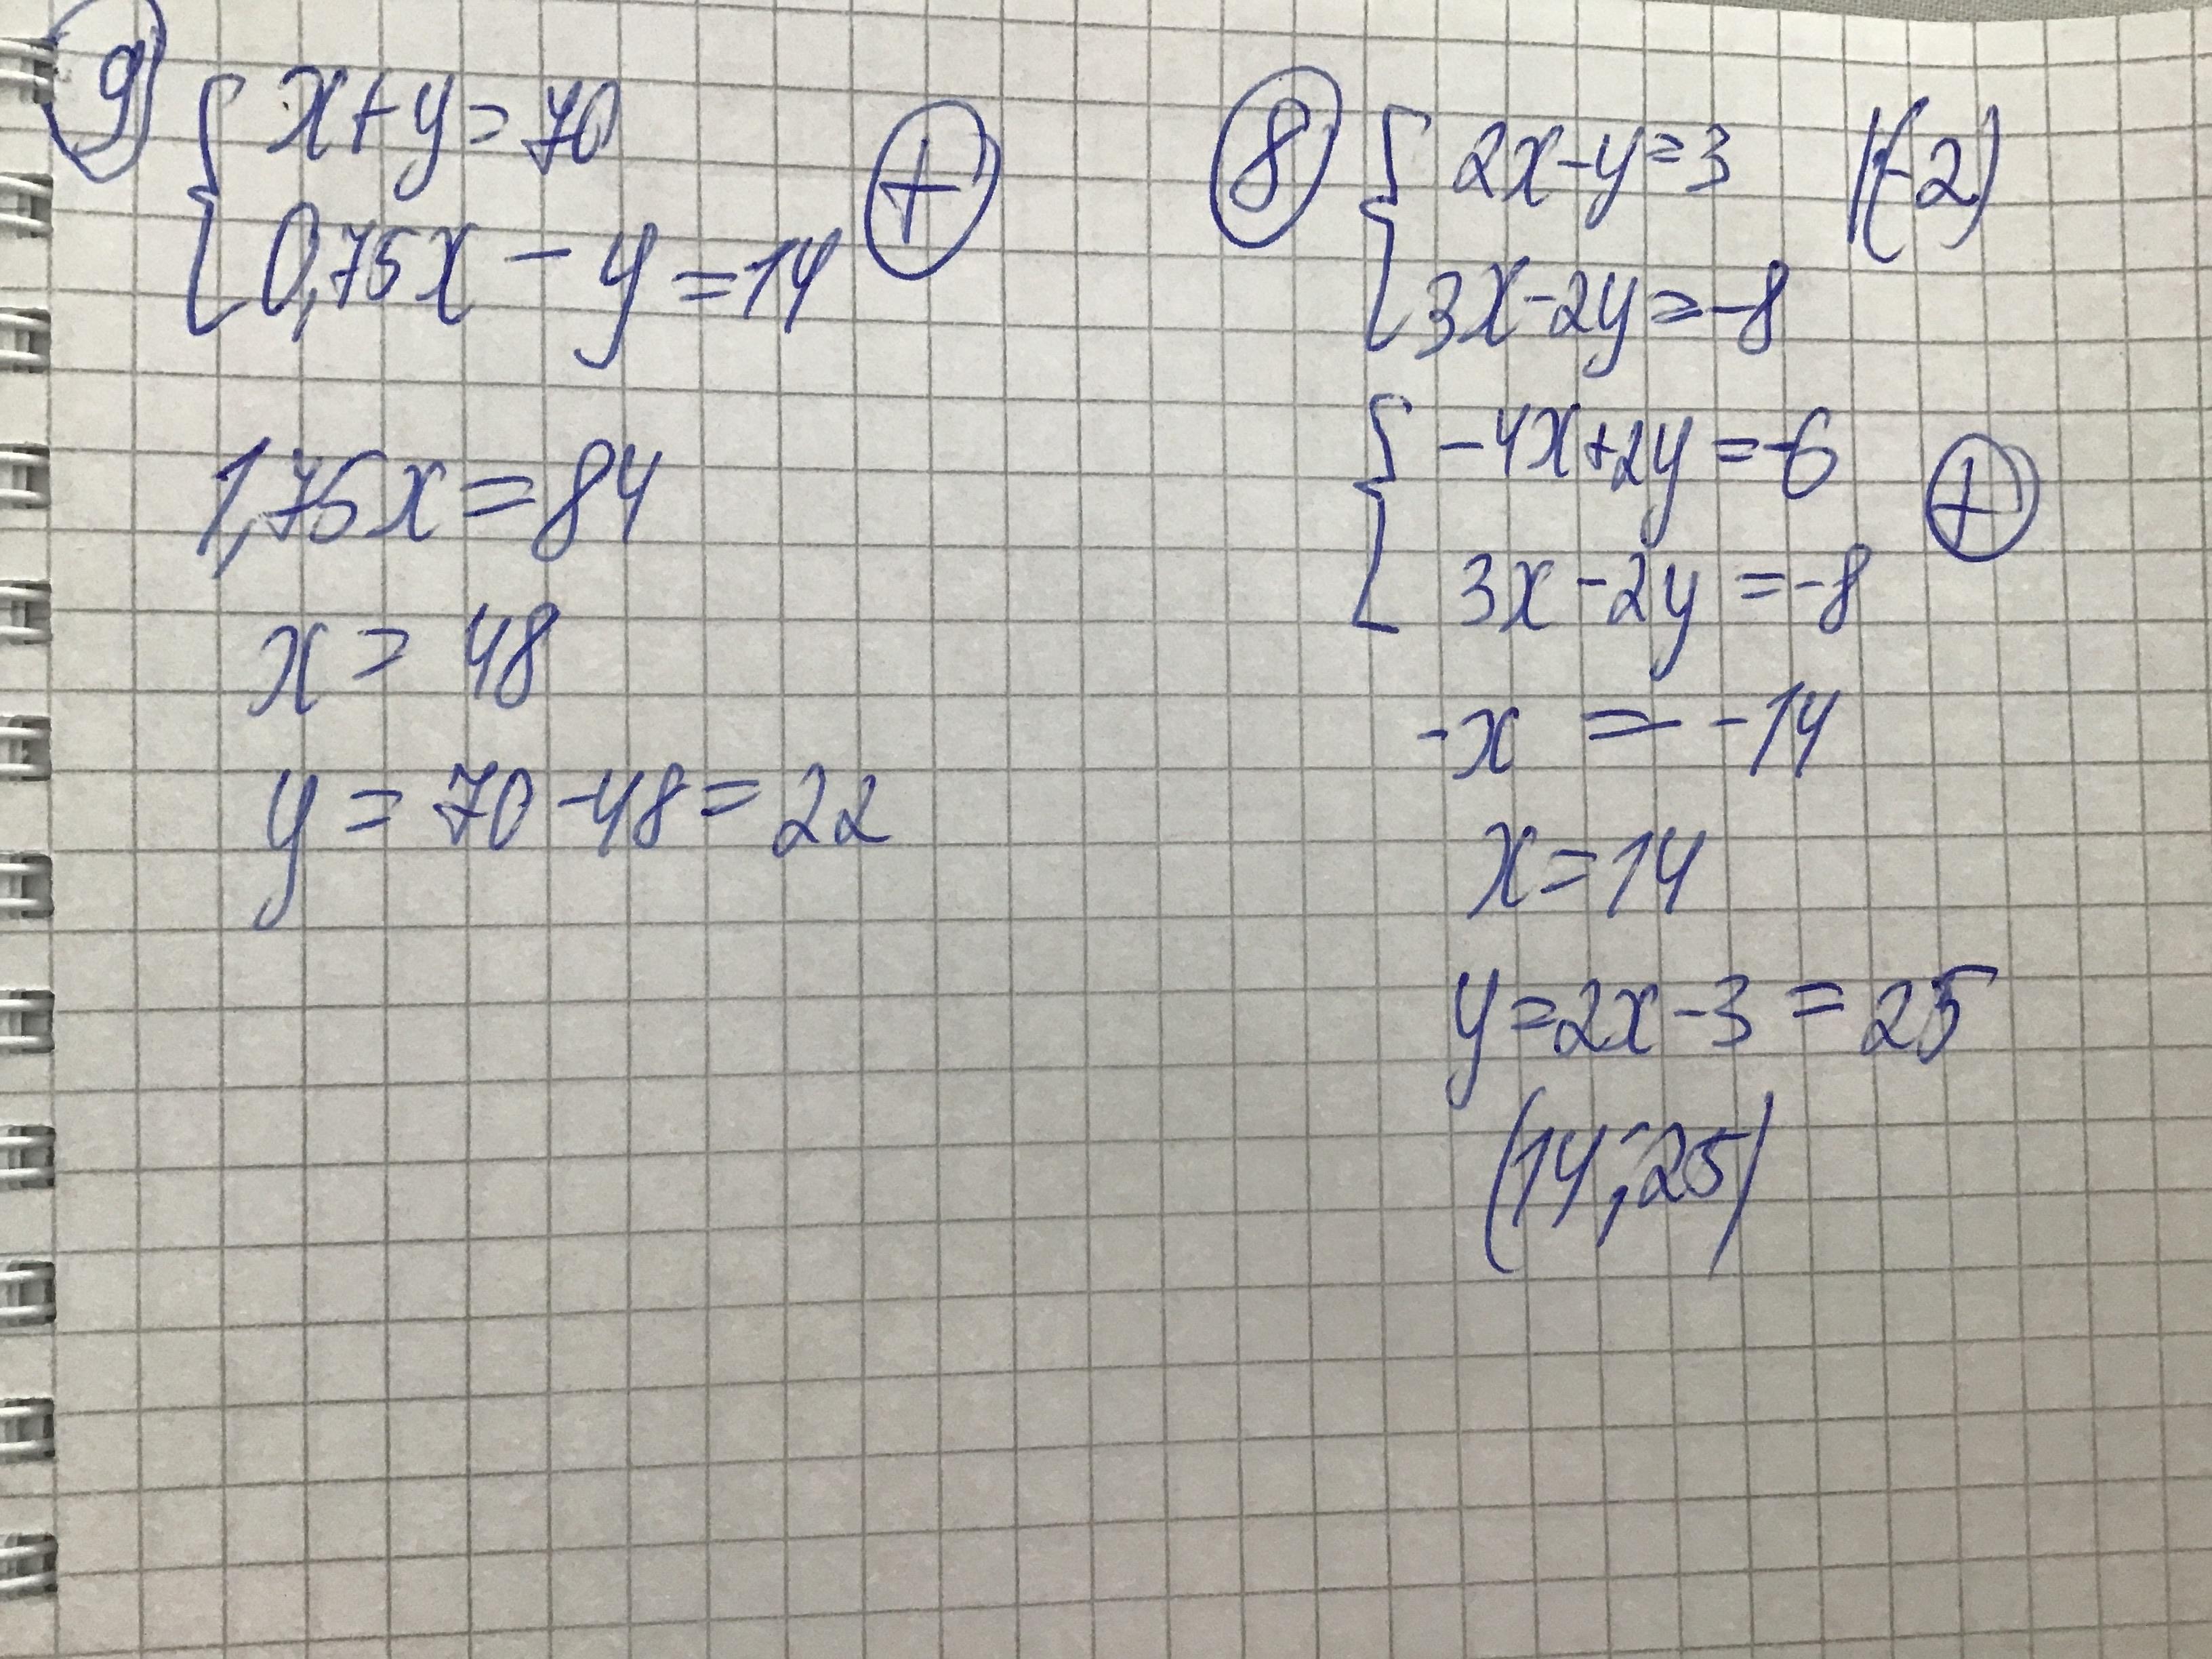 9) { x+y=70
0,75x - y = 14 (+)
1,75x = 84
x = 48
y = 70 - 48 = 22
8 { 2x-y=3 |(-2)
3x-2y=-8
{ -4x+2y=-6 (+)
3x-2y=-8
-x = -14
x=14
y=2x-3=25
(14;25)